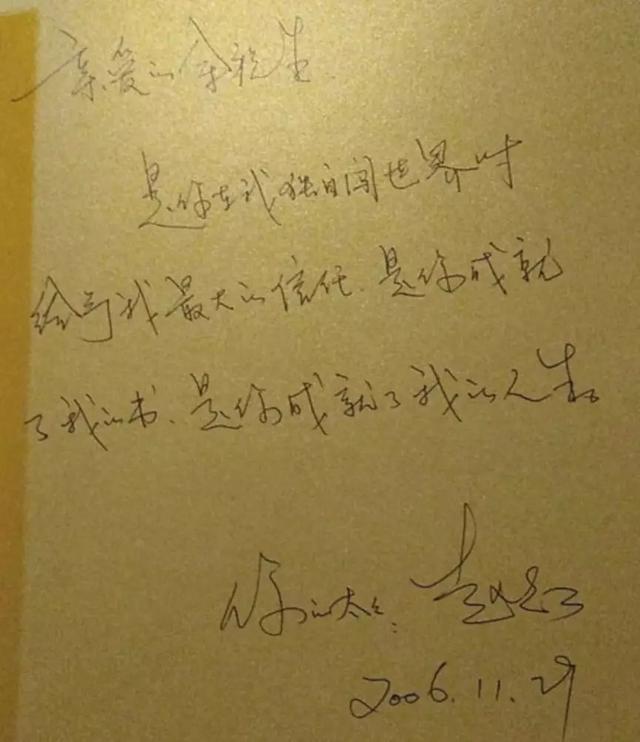 亲爱的余先生
是你在我独自闯世界时
给予我最大的信任、是你成就
了我的书、是你成就了我的人生。
你的太太：赵红
2006.11.29